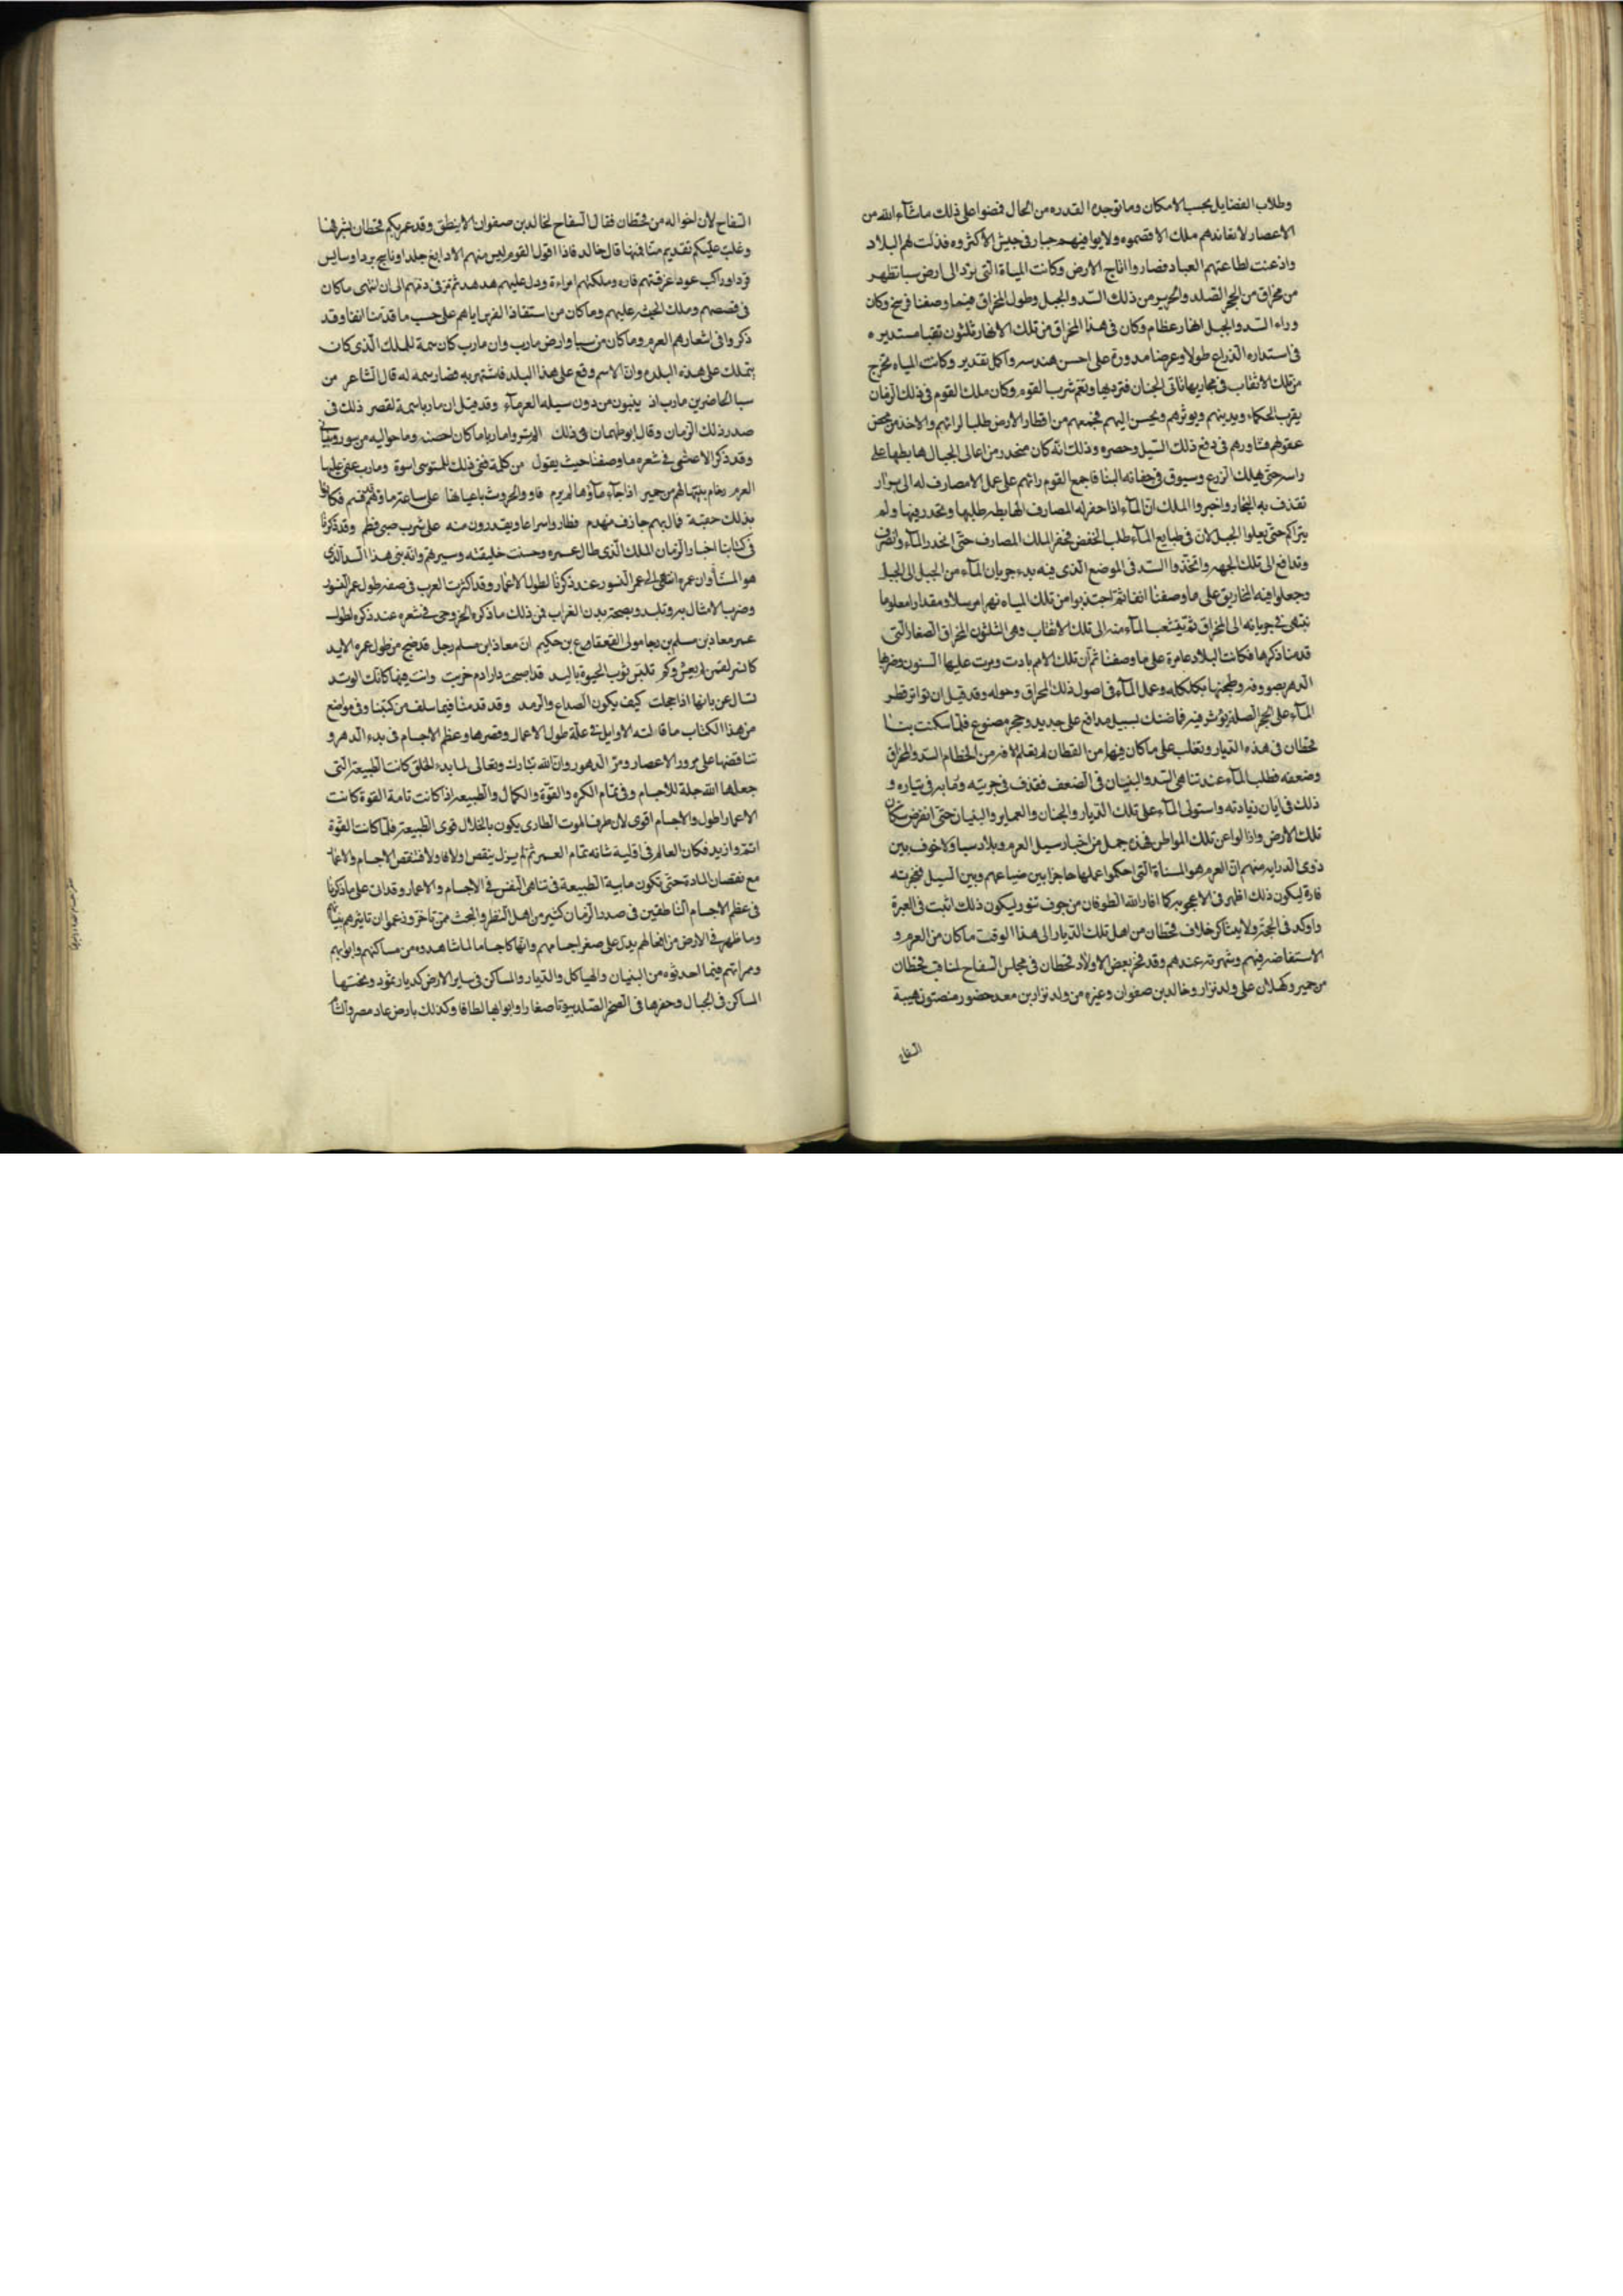 وطلاب الفضايل بحسب الامكان وما توجده القدره من الحال فمضوا على ذلك ماشآء الله من
الاعصار لا يعاندهم ملك الا قصموه ولا يوافيهم جبار فى جيش الا كثروه فذلت لهم البلاد
واذعنت لطاعتهم العباد فصاروا اتاج الارض وكانت المياة التى يرد الى ارض سبا تظهر
من مخراق من الحجر الصلد والحديد من ذلك السد والجبل وطول المخراق فيما وصفنا فرسخ وكان
وراء السد والجبل انهار عظام وكان فى هذا المخراق من تلك الانهار ثلثون نقبا مستديره
فى استداره الذراع طولا وعرضا مدورة على احسن هندسه واكمل تقدير وكانت المياه تخرج
من تلك الانقاب فى مجاريها تاتى الجنان فترويها وتعم شرب القوم وكان ملك القوم فى ذلك الزمان
يقرب الحكماء ويدينهم ويوثرهم ويحسن اليهم فجمعهم من اقطار الارض طلبا لرائهم والاخذ من محض
عقولهم فشاورهم فى دفع ذلك السيل وحصره وذلك انه كان منحدر من اعالى الجبال هابطها على
راسه حتى يهلك الزرع وسيوق فى حفاته البنا فاجمع القوم رائهم على عمل الامصارف له الى براز
تقذف به البحار واخبروا الملك ان المآء اذا حفر له المصارف الهابطه طلبها وتحدر فيها ولم
يتراكم حتى يعلوا الجبل لان فى طبايع المآء طلب الخفض فحفر الملك المصارف حتى انحدر المآء وانصرف
وتدافع الى تلك الجهه واتخذوا السد فى الموضع الذى فيه بدء جريان المآء من الجبل الى الجبل
وجعلوا فيه المخاريق على ما وصفنا انفا ثم اجتذبوا من تلك المياه نهرا مرسلا ومقدارا معلوما
ينتهى فى جريانه الى المخراق ثم يتشعب المآء منه الى تلك الانقاب وهى الثلثون المخراق الصغار التى
قدمنا ذكرها فكانت البلاد عامرة على ما وصفنا ثم ان تلك الامم بادت ومرت عليها السنون وضربها
الدهر بصروفه وطحنها بكلكله وعمل المآء فى اصول ذلك المخراق وحوله وقد قيل ان تواتر قطر
المآء على الحجر الصلد يؤثر فيه فاضنك بسيل مدافع على حديد وحجر مصنوع فلما سكنت بنا
قحطان فى هذه الديار وتغلب على ما كان فيها من القطان لم يعلم الافه من الحطام السد والمخراق
وضعفه فطلب المآء عند تناهى السد والبنيان فى الضعف فقذف فى جريته ومابه فى تياره و
ذلك فى ابان زيادته واستولى المآء على تلك الديار والجنان والعماير والبنيان حتى انقرض سكان
تلك الارض وازالوا عن تلك المواطن فهذه جمل من اخبار سيل العرم وبلاد سبا ولا خوف بين
ذوى الدرايه منهم ان العرم هو المسناة التى احكموا عملها حاجزا بين ضياعهم وبين السيل ففجرته
فارة ليكون ذلك اظهر فى الاعجوبه كما افار الله الطوفان من جوف تنور ليكون ذلك اثبت فى العبرة
واوكد فى الحجة ولا يتناكر خلاف قحطان من اهل تلك الديار الى هذا الوقت ما كان من العرم و
الاستفاضه فيهم وشهرته عندهم وقد فخر بعض اولاد قحطان فى مجلس السفاح لمناقب قحطان
من حمير وكهلان على ولد نزار وخالد بن صفوان وغيره من ولد نزار بن معد حضور منصتون هيبة
السفاح
السفاح لان اخواله من قحطان فقال السفاح لخالد بن صفوان الا ينطق وقد عمر بكم قحطان بشرفها
وغلبت عليكم بقديم مناقبها قال خالد فاذا اقول لقوم ليس منهم الا دابغ جلد او ناسج برد او سايس
قرد او راكب عود اغرقتهم فاره وملكتهم امراءة ودل عليهم هدهد ثم مر فى ذمهم الى ان انتهى ما كان
فى قصصهم وملك الحبشه عليهم وما كان من استقاذ الفرس اياهم على حسب ما قدمنا انفا وقد
ذكروا فى اشعارهم العرم وما كان من سبا وارض مارب وان مارب كان سمة للملك الذى كان
يتملك على هذه البلده وان الاسم وقع على هذا البلد فاشتهر به فصار سمه له قال الشاعر من
سبا الحاضرين مارب اذ يبنون من دون سيله العرمآء وقد قيل ان مارب اسمة لقصر ذلك فى
صدر ذلك الزمان وقال ابو طهمان فى ذلك المتروا ماربا ما كان احصنه وما حواليه من سور وبنيان
وقد ذكر الاعشى فى شعره ما وصفنا حيث يقول من كلمة ففى ذلك للمؤتسى اسوة ومارب عفى عليها
العرم رخام بنتها لهم من حمير اذا جآء مآؤها لم يرم فاو والحروث باعيانها على ساعة ماؤهم قسم فكانوا
بذلك حقبة فمال بهم جازف منهدم فطاروا سراعا وما يقدرون منه على شرب صبى فطم وقد ذكرنا
فى كتابنا اخبار الزمان الملك الذى طال عمره وحسنت خليقته وسيرهم وانه بنى هذا السد الذى
هو المسناه وان عمره انتهى الى عمر النسور عند ذكرنا لطوال الاعمار وقد اكثرت العرب فى صفه طول عمر النسور
وضرب الامثال به وتلبد وبصحة بدن الغراب فمن ذلك ما ذكره الخزرجى فى شعره عند ذكره لطول
عمر معاذ بن مسلم بن رجا مولى القعقاع بن حكيم ان معاذ ابن مسلم رجل قد ضج من طول عمره الابد
كانسر لقمن لم يعش وكم تلبس ثوب الحيوة يالبد قد اصبحت دار ادم خربت وانت فيها كانك الوتد
تسال غربانها اذا حجلت كيف يكون الصداع والرمد وقد قدمنا فيما سلف من كتبنا وفى مواضع
من هذا الكتاب ما قالته الاوايل فى علة طول الاعمال وقصرها وعظم الاجسام فى بدء الدهر و
تناقضها على مرور الاعصار ومر الدهور وان الله تبارك وتعالى لما بدء الخلق كانت الطبيعة التى
جعلها الله جلة للاجسام وفى تمام الكره والقوة والكمال والطبيعه اذا كانت تامة القوة كانت
الاعمار اطول والاجسام اقوى لان طرف الموت الطارى يكون بالخلال قوى الطبيعة فلما كانت القوة
اتم وازيد فكان العالم فى اولية شانه تمام العمر ثم لم يزل ينقص اولا فاولا فتنقص الاجسام والاعمار
مع نقصان المادة حتى تكون مابية الطبيعة فى تناهى النفس فى الاجسام والاعمار وقد اتى على ما ذكرنا
فى عظم الاجسام الناطقين فى صدر الزمان كثير من اهل النظر والبحث ممن تاخر وزعموا ان تاثيرهم بينا
وما ظهر فى الارض من افعالهم يدل على صغر اجسامهم وانها كاجسامنا لما شاهدوه من مساكنهم وابوابهم
وممراتهم فيما احدثوه من البنيان والهياكل والديار والمساكن فى ساير الارض كديار ثمود ونحتها
المساكن فى الجبال وحفرها فى الصخر الصلد بيوتا صغارا وابوابها لطافا وكذلك بارض عاد مصر والشام